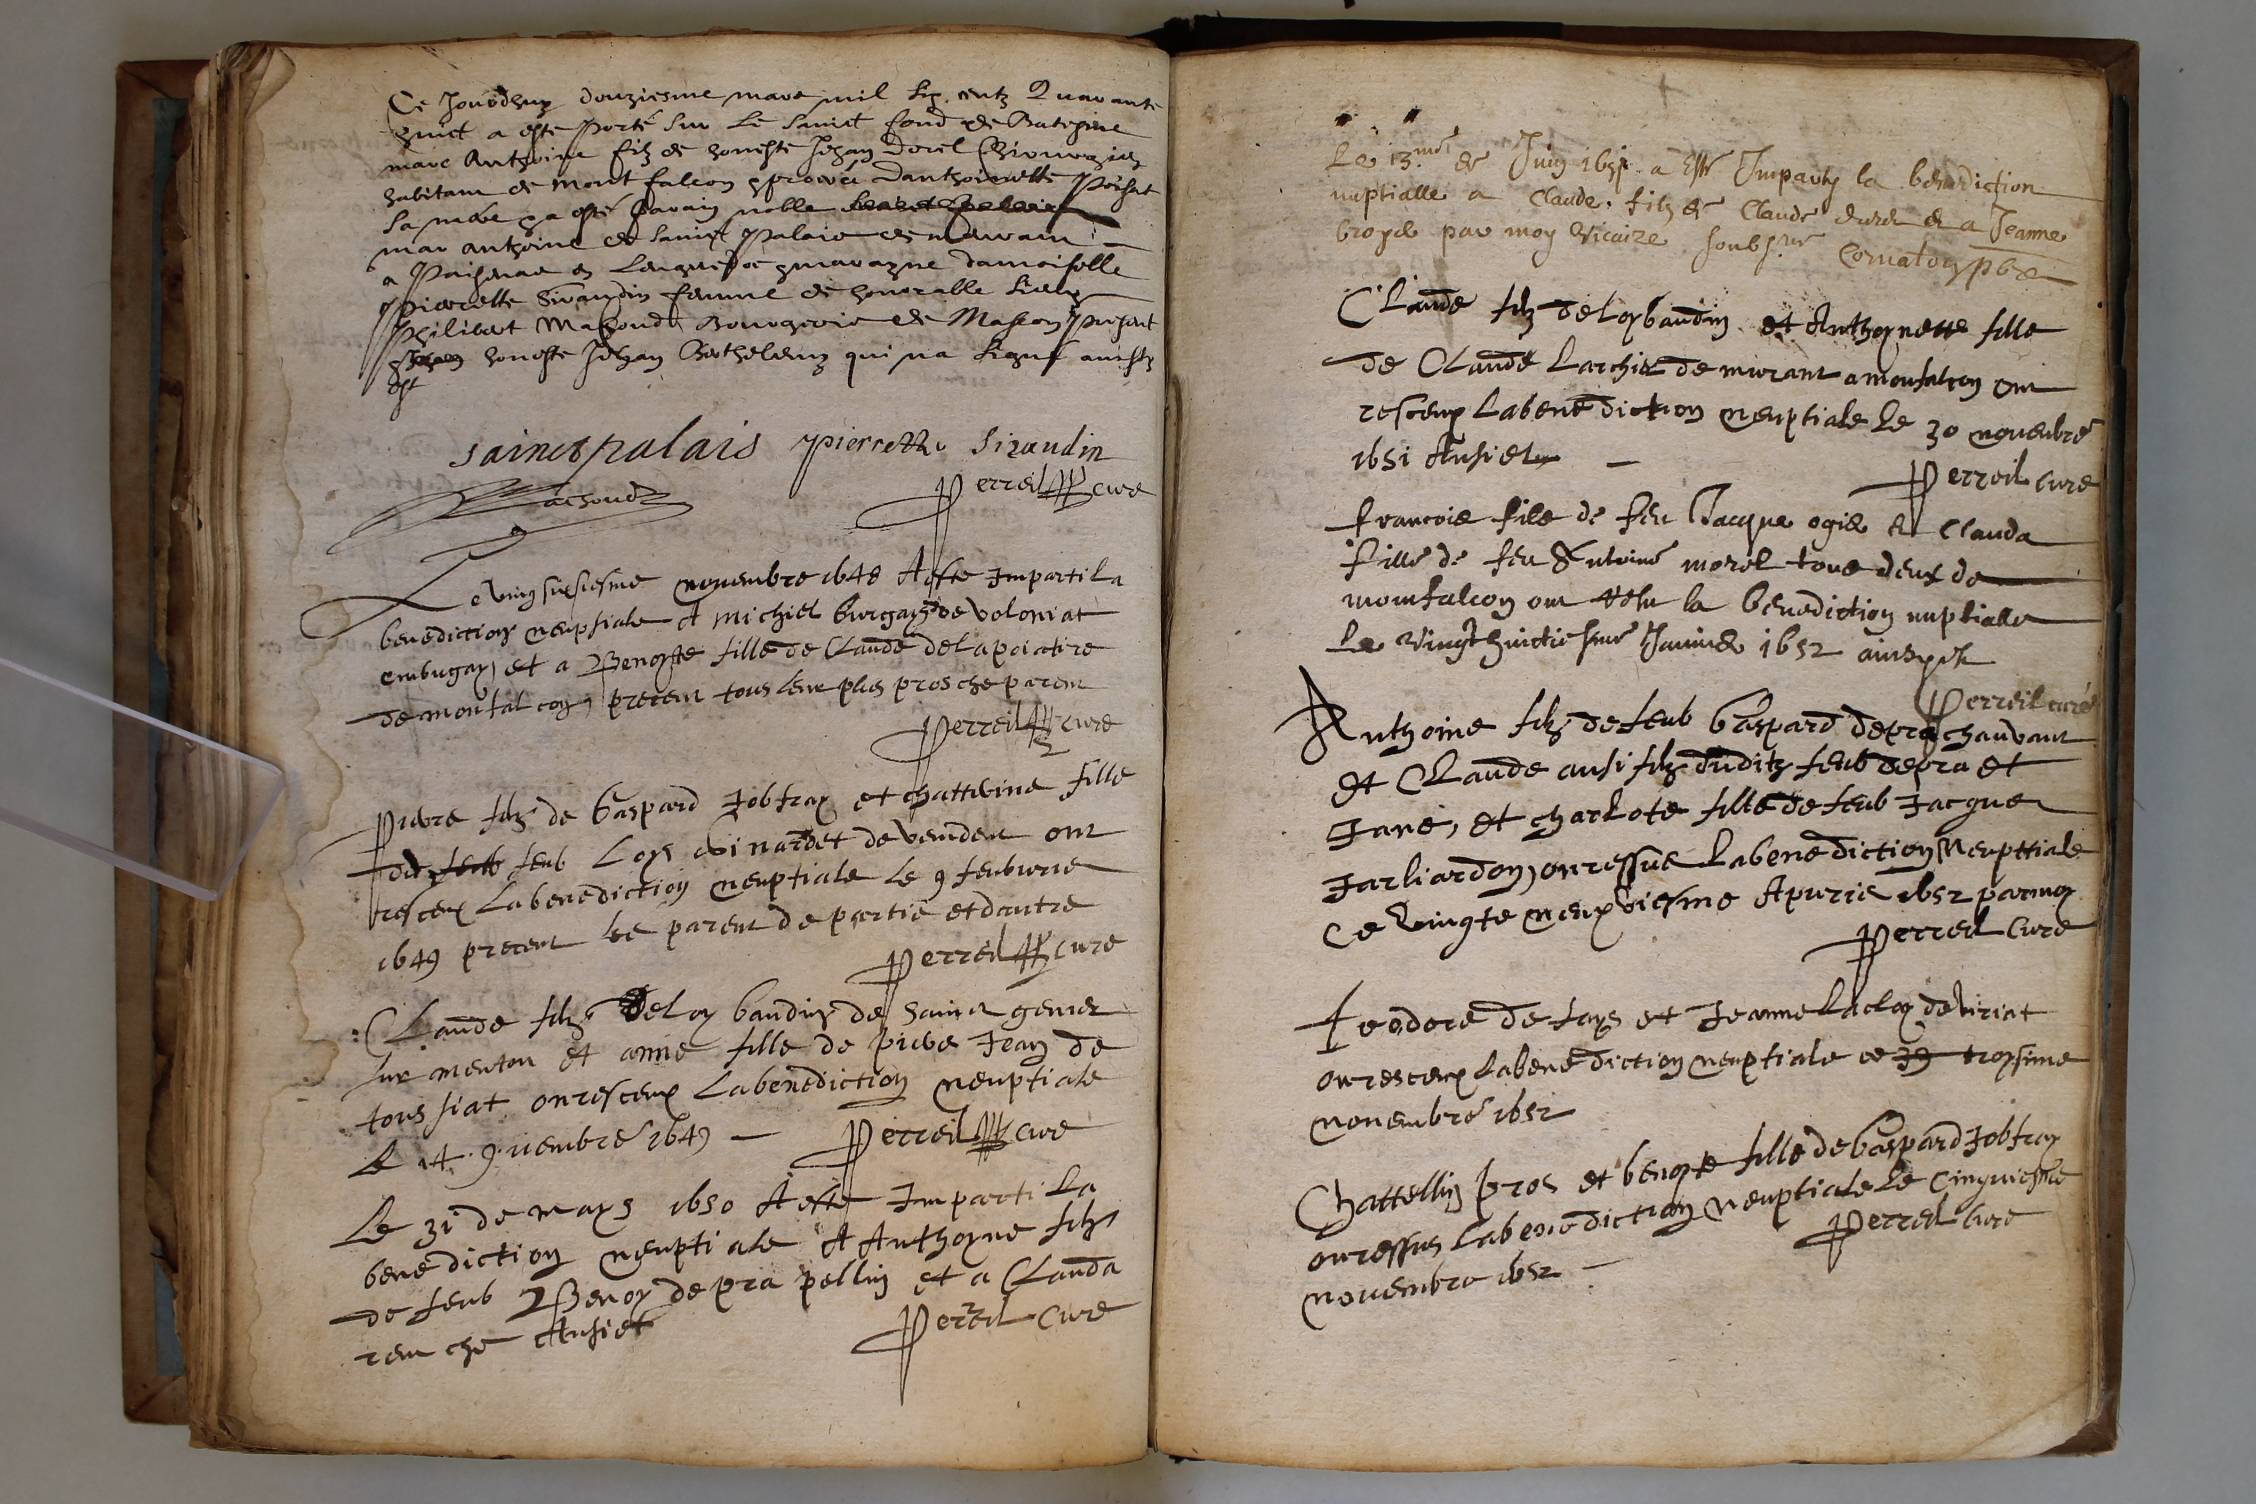 Ce Jourdhuy douziesme mars mil six centz Quarante
huict a esté porté sur le sainct fond de Batesme
marc Anthoine filz de honeste Jehan dorel Chirurgien
habitant de Montfalcon procréé danthoinette
sa mère a esté parain noble
marc anthoine de sainct Palais
a en Languedoc maragne damoiselle
Pierrette Siraudin femme de honorable sieur
Philibert Machoud Bourgeois de Mascon présent
honeste Jehan Berthelemy qui na signé
sainct palais pierrette Siraudin
Machoud Perreil cure
Le vingsixiesme novembre 1648 A este Imparti La
benediction neuptiale A michiel burgay de voloniat
et a Benoyte fille de Claude delapoiatire
de monfalcon, precent tous leur plus prosche parent
Perreil cure
Pierre filz de Gaspard Jobfray et Chatterine fille
feub Loys de vendent ont
resceux La benediction neuptiale Le 9 feubvrie
1649 precent les parent de partie et dautre
Perreil cure
Claude filz de Loy baudin de Sainct genies
sur menton et anne fille de pierre Jean de
toussiat on resceux La benediction neuptiale
Le 14 9vembre 1649 — Perreil cure
Le 31 de mars 1650 A este Imparti La
benediction neuptiale A Anthoyne filz
de feub Benoy de pra pellin et a Clauda
Perreil cure
Le 13me de Juin 1651 a esté Imparty la benediction
nuptialle a Claude filz de Claude et a Jeanne
par moy vicaire soubsné Cornaton pbre
Claude filz de Loy baudin et Anthoynette fille
de Claude Larchier demurant a monfalcon ont
resceux La benediction neuptiale le 30 novembre
1651 —
Perreil cure
francois filz de feu Jacque ogie et Clauda
fille de feu Antoine morel tous deux de
montfalcon ont la benediction nuptialle
Le vingt huictiesme Janvier 1652
Perreil curé
Anthoine filz de feub Gaspard depra chauvant
et Claude ausi filz dudit feub depra et
Jane, et charlote fille de feub Jacque
Jarliardon, on ressue La benediction Neupttiale
Ce vingte neuxviesme Apvrie 1652 par moy
Perreil cure
de fays et Jeanne Laclay de viriat
on resceux La benediction neuptiale ce troysime
novembre 1652
Chattellin pros et benoyte fille de Gaspard Jobfray
on ressus La benediction neuptiale Le Cinquiesme
novembre 1652 — Perreil cure